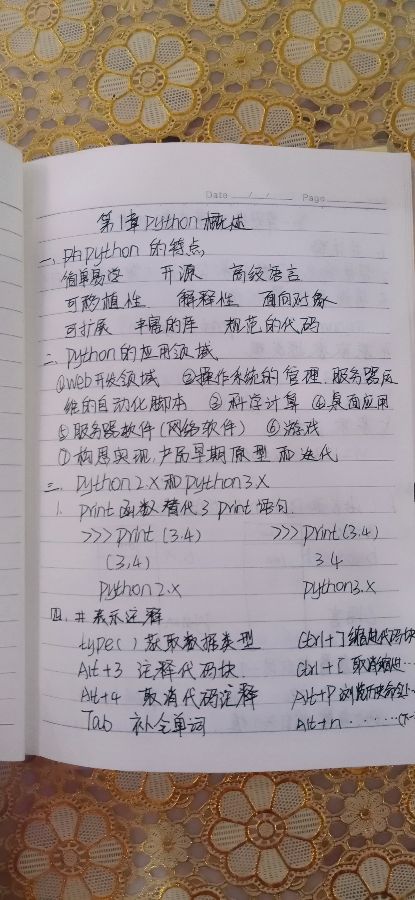 Date / / Page
第1章 python 概述
一、python 的特点
简单易学 开源 高级语言
可移植性 解释性 面向对象
可扩展 丰富的库 规范的代码
二、python的应用领域
①web开发领域 ②操作系统的管理、服务器运
维的自动化脚本 ③科学计算 ④桌面应用
⑤服务器软件(网络软件) ⑥游戏
⑦构思实现,产品早期原型和迭代
三、python2.x和python3.x
1. print函数替代了print语句
>>>print (3.4) >>>print(3.4)
(3,4) 3 4
python2.x python3.x
四、#表示注释
type() 获取数据类型 Ctrl+] 缩进代码块
Alt+3 注释代码块 Ctrl+[ 取消缩进…
Alt+4 取消代码注释 Alt+P 浏览历史命令(上一
Tab 补全单词 Alt+n ……(下一